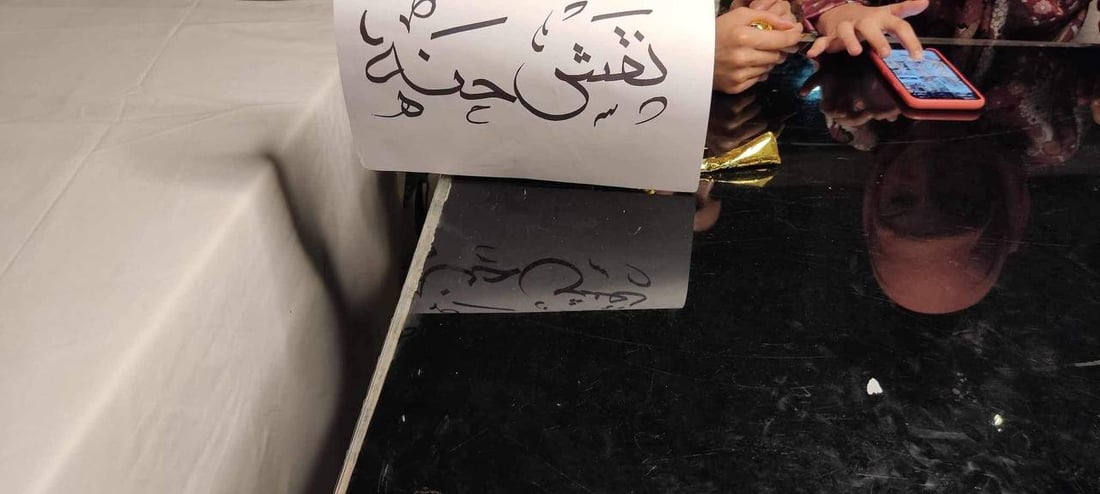 نقش حنه